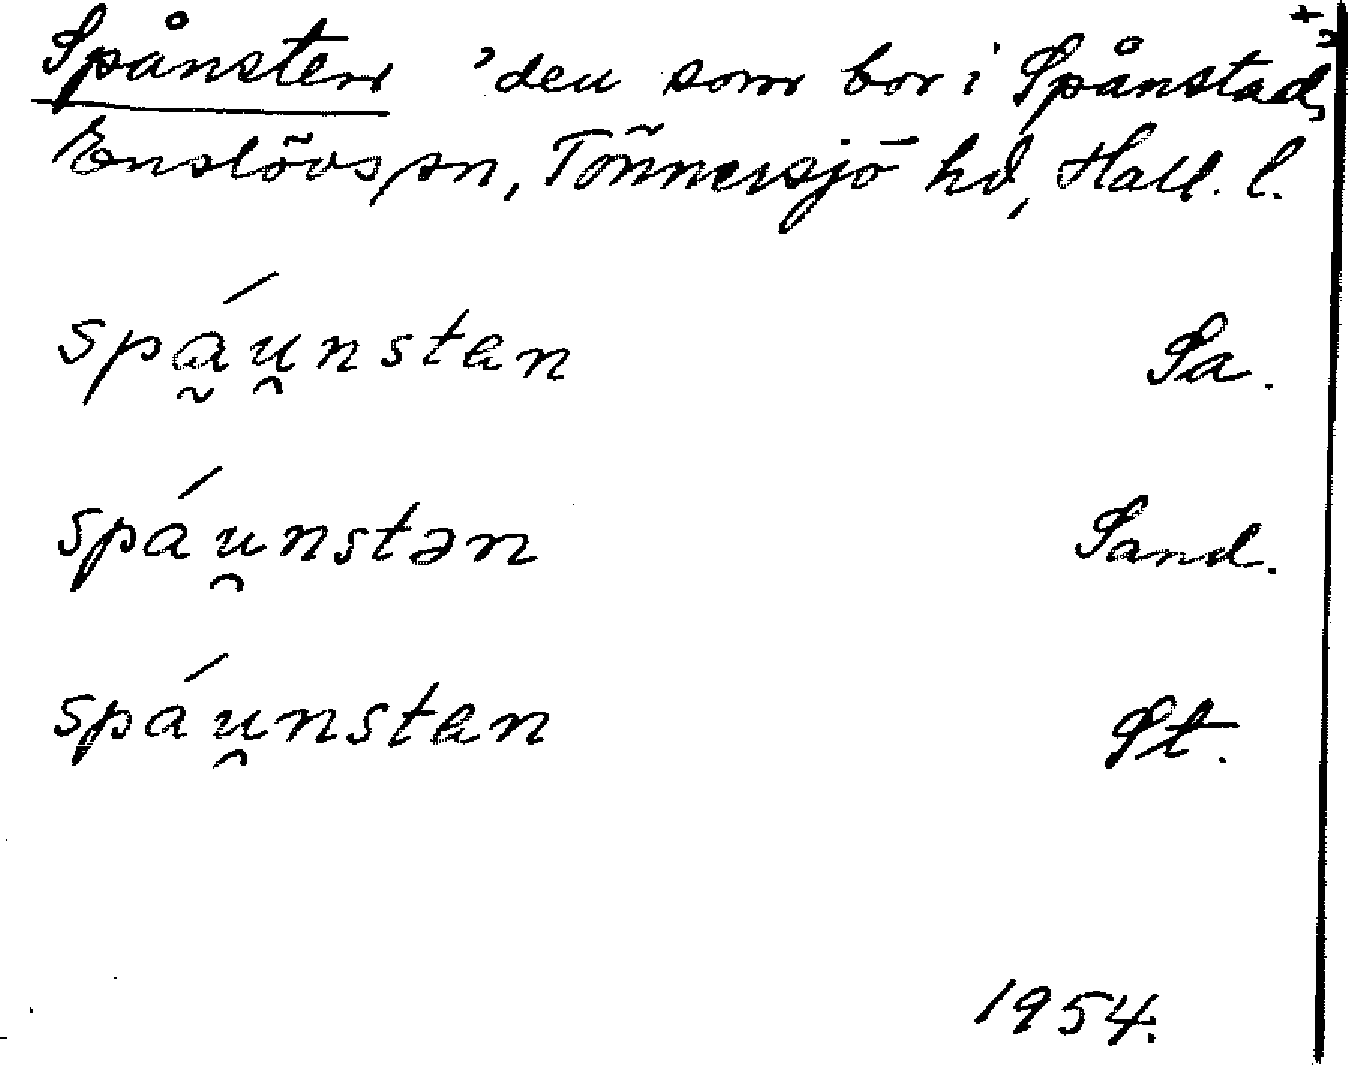 Spånsten 'den som bor i Spånstad,
Enslövs sn, Tönnersjö hd, Hall. l.
spá̰u̯nsten Sa.
spáu̯nstən Sand.
spáu̯nsten St.
1954.